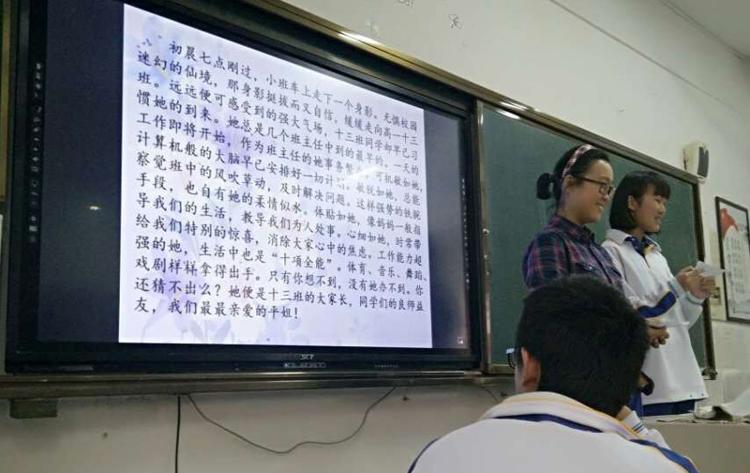 初晨七点刚过，小班车上走下一个身影。无惧校园
迷幻的仙境，那身影挺拔而又自信，缓缓走向高一十三
班。远远便可感受到的强大气场，十三班同学却早已习
惯她的到来。她总是几个班主任中到的最早的。一天的
工作即将开始，作为班主任的她事务繁 可机敏如她，
计算机般的大脑早已安排好一切计 敏锐如她，总能
察觉班中的风吹草动，及时解决问题。这样强势的铁腕
手段，也自有她的柔情似水。体贴如她，像妈妈一般指
导我们的生活，教导我们为人处事。心细如她，时常带
给我们特别的惊喜，消除大家心中的焦虑。工作能力超
强的她，生活中也是“十项全能”。体育、音乐、舞蹈、
戏剧样样拿得出手。只有你想不到，没有她办不到。你
还猜不出么？她便是十三班的大家长，同学们的良师益
友，我们最最亲爱的平姐！